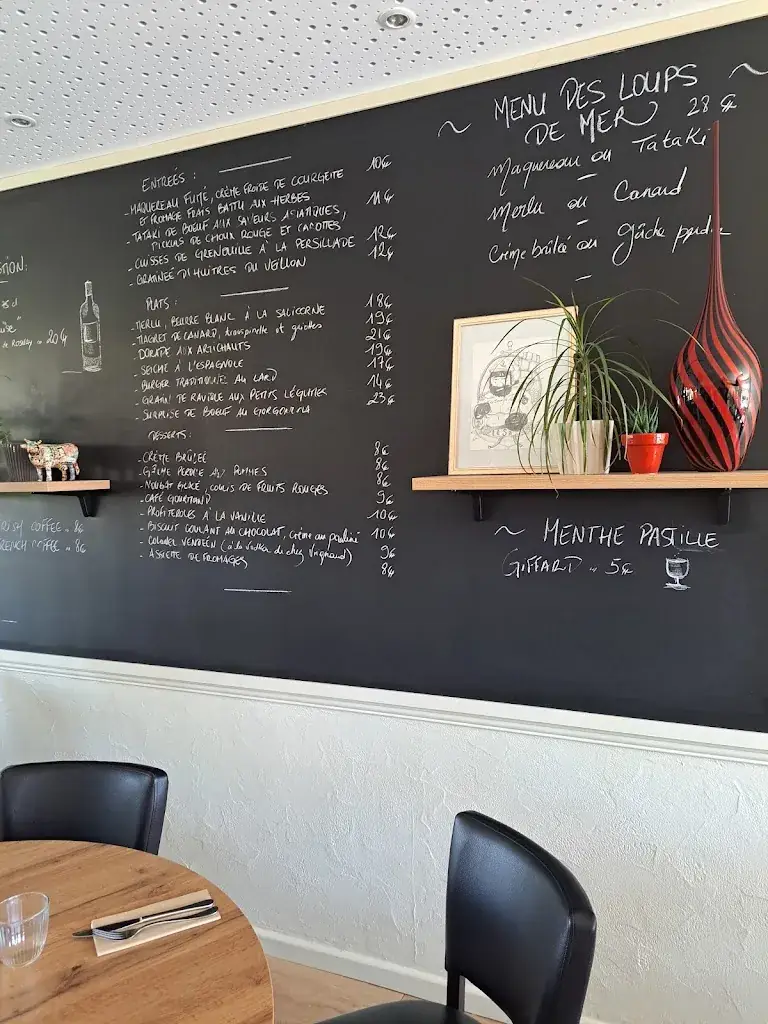 ENTRÉES :
- MAQUEREAU FUMÉ, CRÈME FROIDE DE COURGETTE 10€
ET FROMAGE FRAIS BATTU AUX HERBES
- TATAKI DE BOEUF AUX SAVEURS ASIATIQUES, 11€
PICKLES DE CHOUX ROUGE ET CAROTTES,
- CUISSES DE GRENOUILLE À LA PERSILLADE 12€
- GRATINÉE D'HUITRES DU VEILLON 12€
PLATS :
- MERLU, BEURRE BLANC À LA SALICORNE 18€
- MAGRET DE CANARD, et griottes 19€
- DORADE AUX ARTICHAUTS 21€
- SEICHE À L'ESPAGNOLE 19€
- BURGER TRADITIONNEL AU LARD 17€
- GRATIN DE RAVIOLE AUX PETITS LÉGUMES 14€
- SURPRISE DE BOEUF AU GORGONZOLA 23€
DESSERTS :
- CRÈME BRÛLÉE 8€
- GÂCHE PERDUE AUX POMMES 8€
- NOUGAT GLACÉ, COULIS DE FRUITS ROUGES 8€
- CAFÉ GOURMAND 9€
- PROFITEROLES À LA VANILLE 10€
- BISCUIT COULANT AU CHOCOLAT, crème au praliné 10€
- COLONEL VENDÉEN (à la vodka de chez Vrignaud) 9€
- ASSIETTE DE FROMAGES 8€
~ MENU DES LOUPS ~
DE MER 28€
Maquereau ou Tataki
Merlu ou Canard
Crème brûlée ou gâche perdue
~ MENTHE PASTILLE
GIFFARD .. 5€
TION:
de Rosnay .. 20€
COFFEE .. 8€
FRENCH COFFEE .. 8€